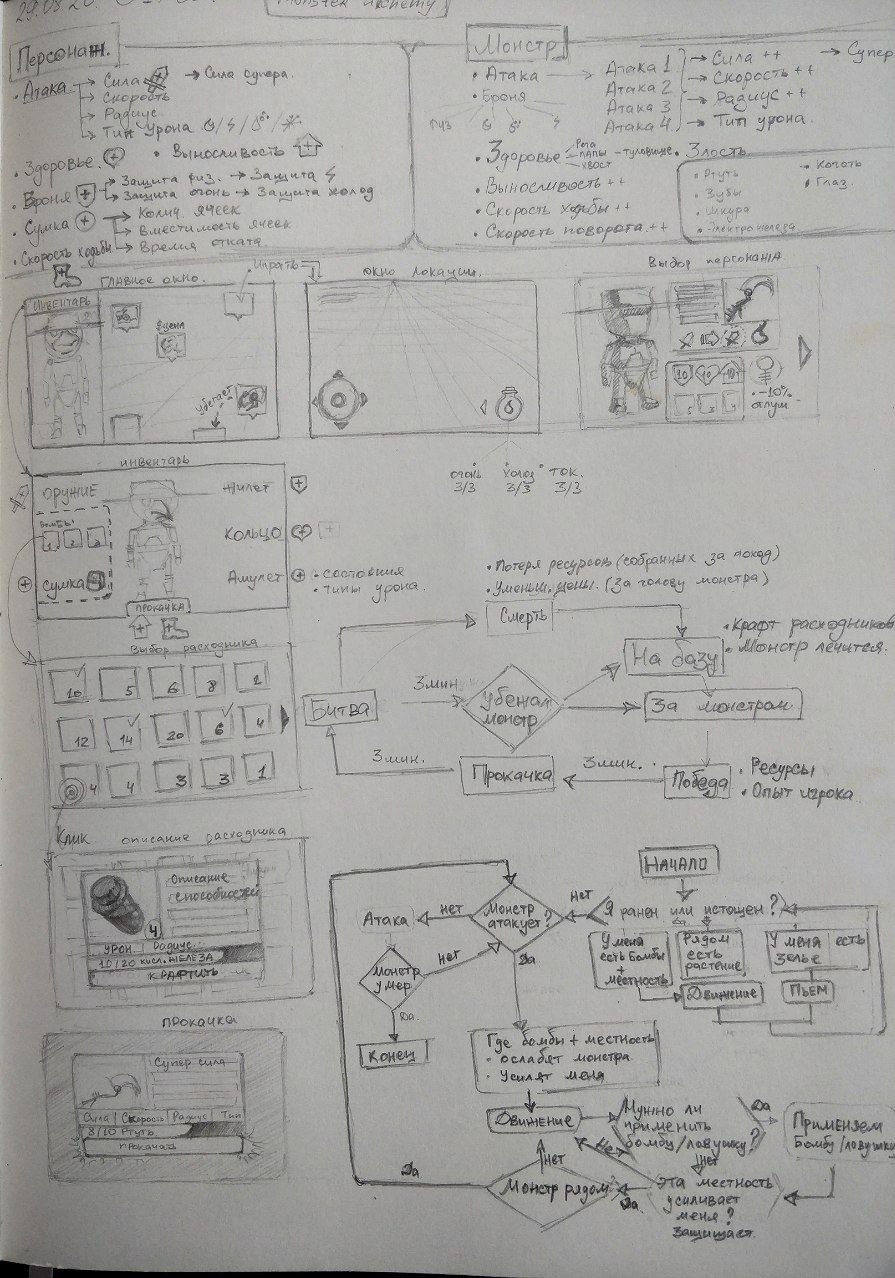 29.08.20.
Персонаж.
• Атака → Сила → Сила супера.
→ Скорость
→ Радиус
→ Тип урона
• Здоровье. • Выносливость
• Броня → Защита физ. → Защита
→ Защита огонь → Защита холод
• Сумка → Колич. ячеек
→ Вместимость ячеек
→ Время отката.
• Скорость ходьбы
Монстр
• Атака → Атака 1 → Сила ++ → Супер
Атака 2 → Скорость ++
Атака 3 → Радиус ++
Атака 4 → Тип урона.
• Броня
физ
• Здоровье Рога лапы хвост туловище • Злость
• Выносливость ++
• Скорость ходьбы ++
• Скорость поворота ++
• Ртуть
• Зубы
• Шкура
• Электро железа
• Коготь
• Глаз.
Главное окно.
• Играть
окно локации.
Выбор персонажа
Инвентарь
Убегает
10
10
10
5
3
• -10%
инвентарь
Оружие
Бомбы
1 2 3
Сумка
Жилет
Кольцо
Амулет
• Состояния
• Типы урона.
Прокачка
огонь холод ток.
3/3 3/3 3/3
• Потеря ресурсов (собранных за поход)
• Уменьш. цены. (За голову монстра)
Смерть
• Крафт расходников
• Монстр лечится.
На базу
Битва
3 мин.
Убежал монстр
За монстром
3 мин.
Прокачка
3 мин.
Победа
• Ресурсы
• Опыт игрока
Выбор расходника
16 5 6 8 2
12 14 20 6 4
4 4 3 3 1
Клик описание расходника
Описание
способностей
4
Урон. Радиус.
10/20 кисл. железа
Крафтить
Прокачка
Супер сила
Сила Скорость Радиус Тип
8/10 Ртуть
прокачать
Начало
Я ранен или истощен?
нет
Монстр атакует?
нет
Атака
Да
У меня есть бомбы + местность
Рядом есть растение
У меня есть зелье
Движение
Пьем
нет
Монстр умер
Да.
Конец
Да
Где бомбы + местность
• ослабят монстра.
• Усилят меня
Движение
Нужно ли
применить
бомбу/ловушку?
Да
Применяем
Бомбу/ловушку
Нет
нет
Эта местность
усиливает
меня?
Защищает.
Да
Монстр рядом?
нет
Да